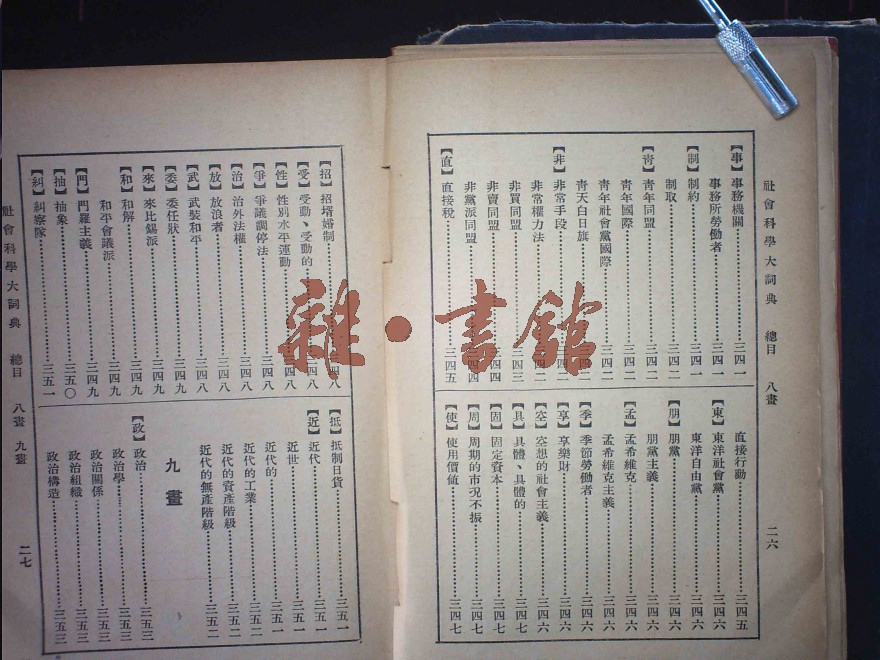 社會科學大詞典　總目　八畫　二六
【事】事務機關……三四一
事務所勞働者……三四一
【制】制約……三四一
制取……三四二
【靑】靑年同盟……三四二
靑年國際……三四二
靑年社會黨國際……三四二
靑天白日旗
【非】非常手段
非常權力法
非買同盟
非賣同盟
非黨派同盟
【直】直接稅……三四五
直接行動……三四五
【東】東洋社會黨……三四六
東洋自由黨……三四六
【朋】朋黨……三四六
朋黨主義……三四六
【孟】孟希維克……三四六
孟希維克主義……三四六
【季】季節勞働者……三四六
【享】享樂財……三四六
【空】空想的社會主義……三四六
【具】具體、具體的……三四六
【固】固定資本……三四七
【周】周期的市況不振……三四七
【使】使用價値……三四七
雜·書館
社會科學大詞典　總目　八畫　九畫　二七
【招】招壻婚制
【受】受動、受動的
【性】性別水平運動
【爭】爭議調停法……三四八
【治】治外法權……三四八
【放】放浪者……三四八
【武】武裝和平……三四八
【委】委任狀……三四八
【來】來比錫派……三四九
【和】和解……三四九
和平會議派……三四九
【鬥】鬥羅主義……三四九
【抽】抽象……三五〇
【糾】糾察隊……三五一
【抵】抵制日貨……三五一
【近】近代……三五一
近世……三五一
近代的……三五一
近代的工業……三五二
近代的資產階級……三五二
近代的無產階級……三五二
九畫
【政】政治……三五三
政治學……三五三
政治關係……三五三
政治組織……三五三
政治構造……三五三